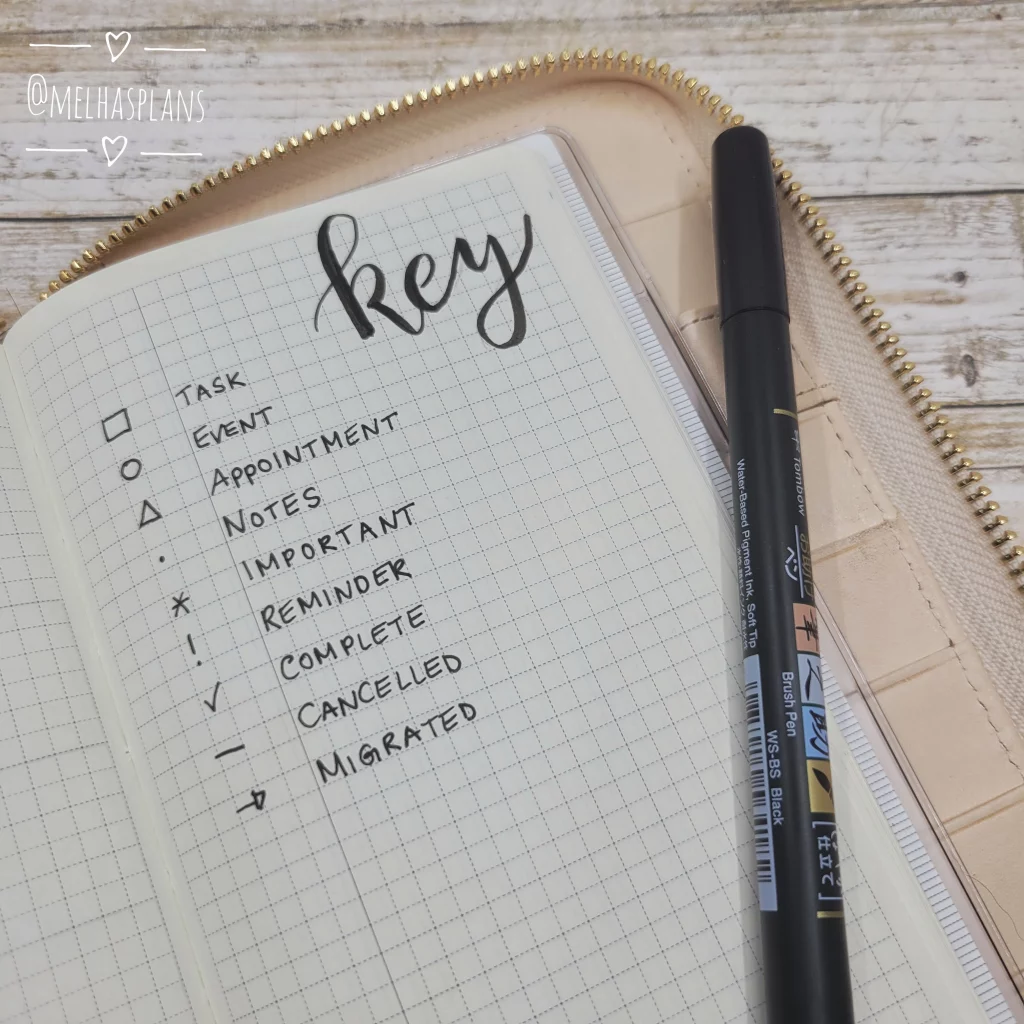 @MELHASPLANS
key
□ TASK
○ EVENT
△ APPOINTMENT
· NOTES
* IMPORTANT
! REMINDER
✓ COMPLETE
— CANCELLED
→ MIGRATED
Tombow
ペン
Water-Based Pigment Ink, Soft Tip
Brush Pen
WS-BS Black
仕立て